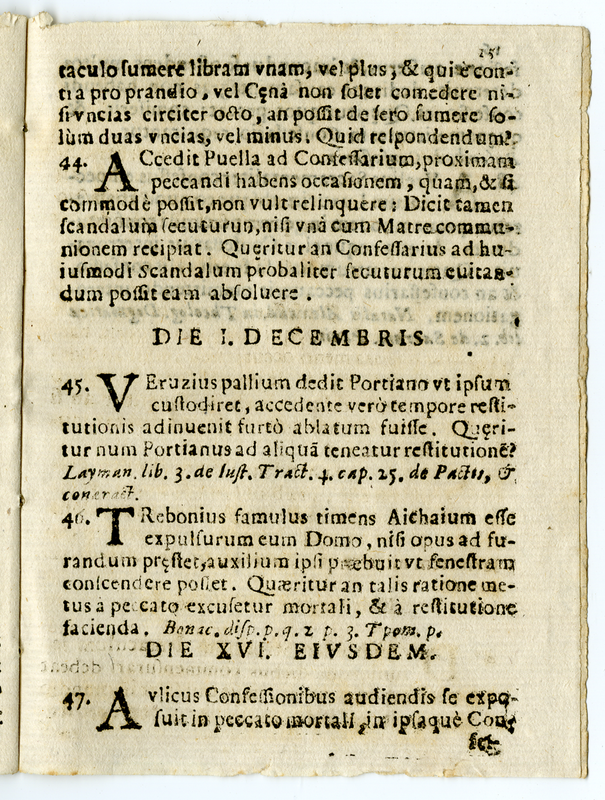 251
taculo sumere libram vnam, vel plus, & qui è con-
tra pro prandio, vel Cęnà non solet comedere ni-
si vncias circiter octo, an possit de sero sumere so-
lùm duas vncias, vel minus. Quid respondendum?
44. ACcedit Puella ad Confessarium, proximam
peccandi habens occasionem, quam, & si
commodè possit, non vult relinquere: Dicit tamen
scandalum secuturun, nisi vnà cum Matre commu-
nionem recipiat. Quęritur an Confessarius ad hu-
iusmodi Scandalum probaliter secuturum euitan-
dum possit eam absoluere.
DIE I. DECEMBRIS
45. VEruzius pallium dedit Portiano vt ipsum
custodiret, accedente verò tempore resti-
tutionis adinuenit furtò ablatum fuisse. Quęri-
tur num Portianus ad aliquã teneatur restitutionẽ?
Layman. lib. 3. de Iust. Tract. 4. cap. 25. de Pactis, &
contract.
46. TRebonius famulus timens Aichaium esse
expulsurum eum Domo, nisi opus ad fu-
randum pręstet, auxilium ipsi præbuit vt fenestram
conscendere posset. Quæritur an talis ratione me-
tus à peccato excusetur mortali, & à restitutione
facienda. Bonac. disp. p. q. 2 p. 3. Tpom. p.
DIE XVI. EIVSDEM.
47. AVlicus Confessionibus audiendis se expo-
suit in peccato mortali, in ipsaquè Con-
fes-